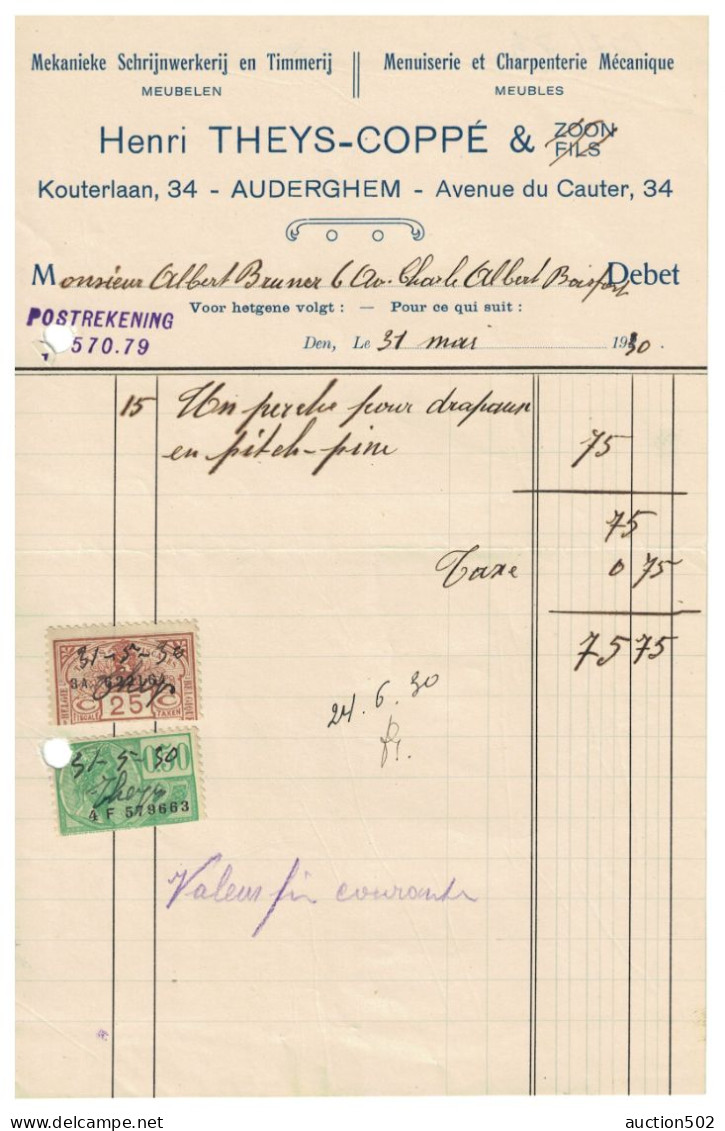 Mekanieke Schrijnwerkerij en Timmerij
MEUBELEN
Menuiserie et Charpenterie Mécanique
MEUBLES
Henri THEYS-COPPÉ & ZOON FILS
Kouterlaan, 34 - AUDERGHEM - Avenue du Cauter, 34
Monsieur Albert Bruner 6 Av. Charle Albert Boisfort Debet
Voor hetgene volgt : — Pour ce qui suit :
POSTREKENING
570.79
Den, Le 31 mai 1930.
15 Un perche pour drapaux
en pitch-pine 75
75
Taxe 0 75
75 75
31-5-30
BELGIE
25
BELGIQUE
FISCALE TAXEN
24.6.30
31-5-30
0.90
Theys
4 F 579663
Valeur fin courante
auction502